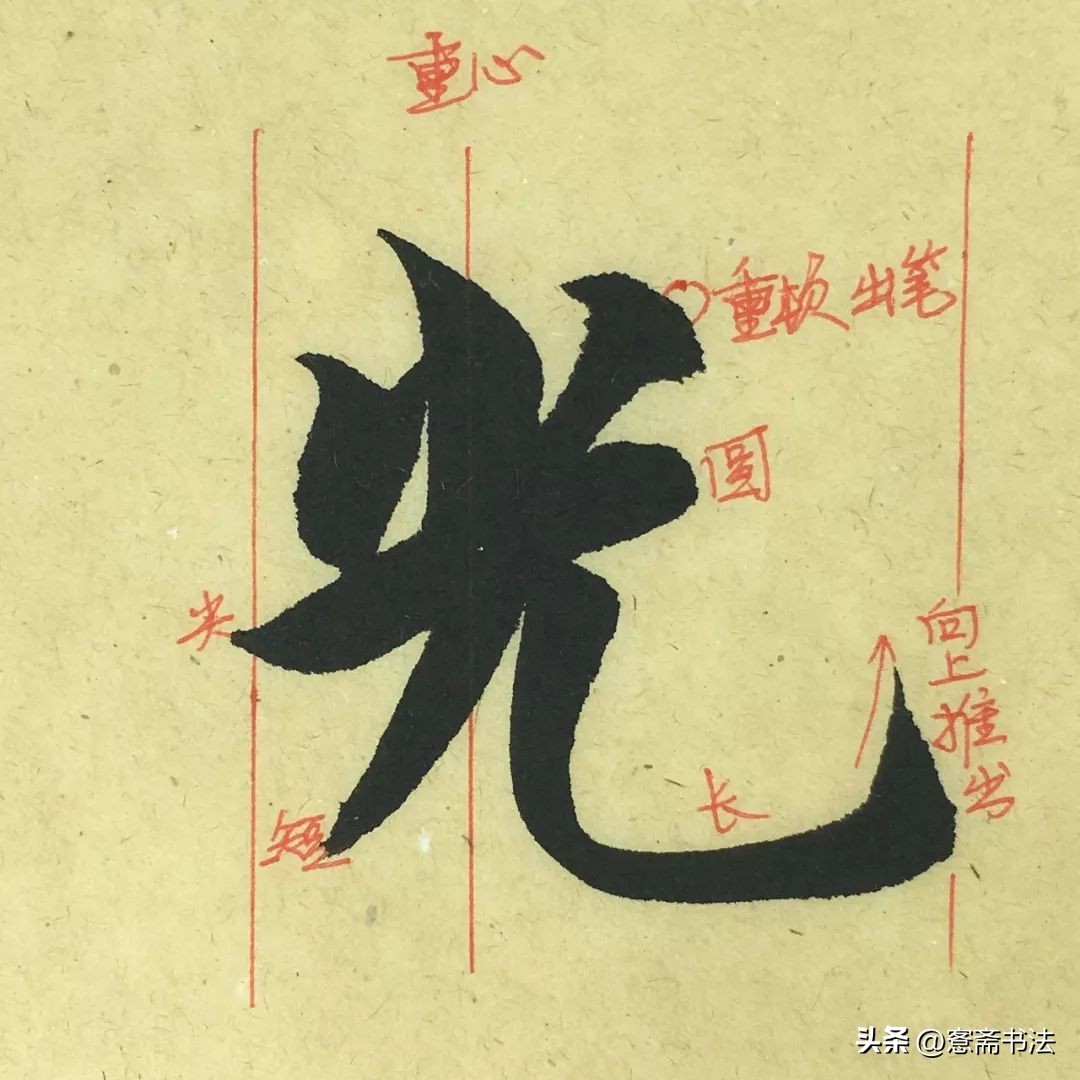 重心
重顿出笔
光
圆
尖
向上推出
长
短
头条 @愙斋书法